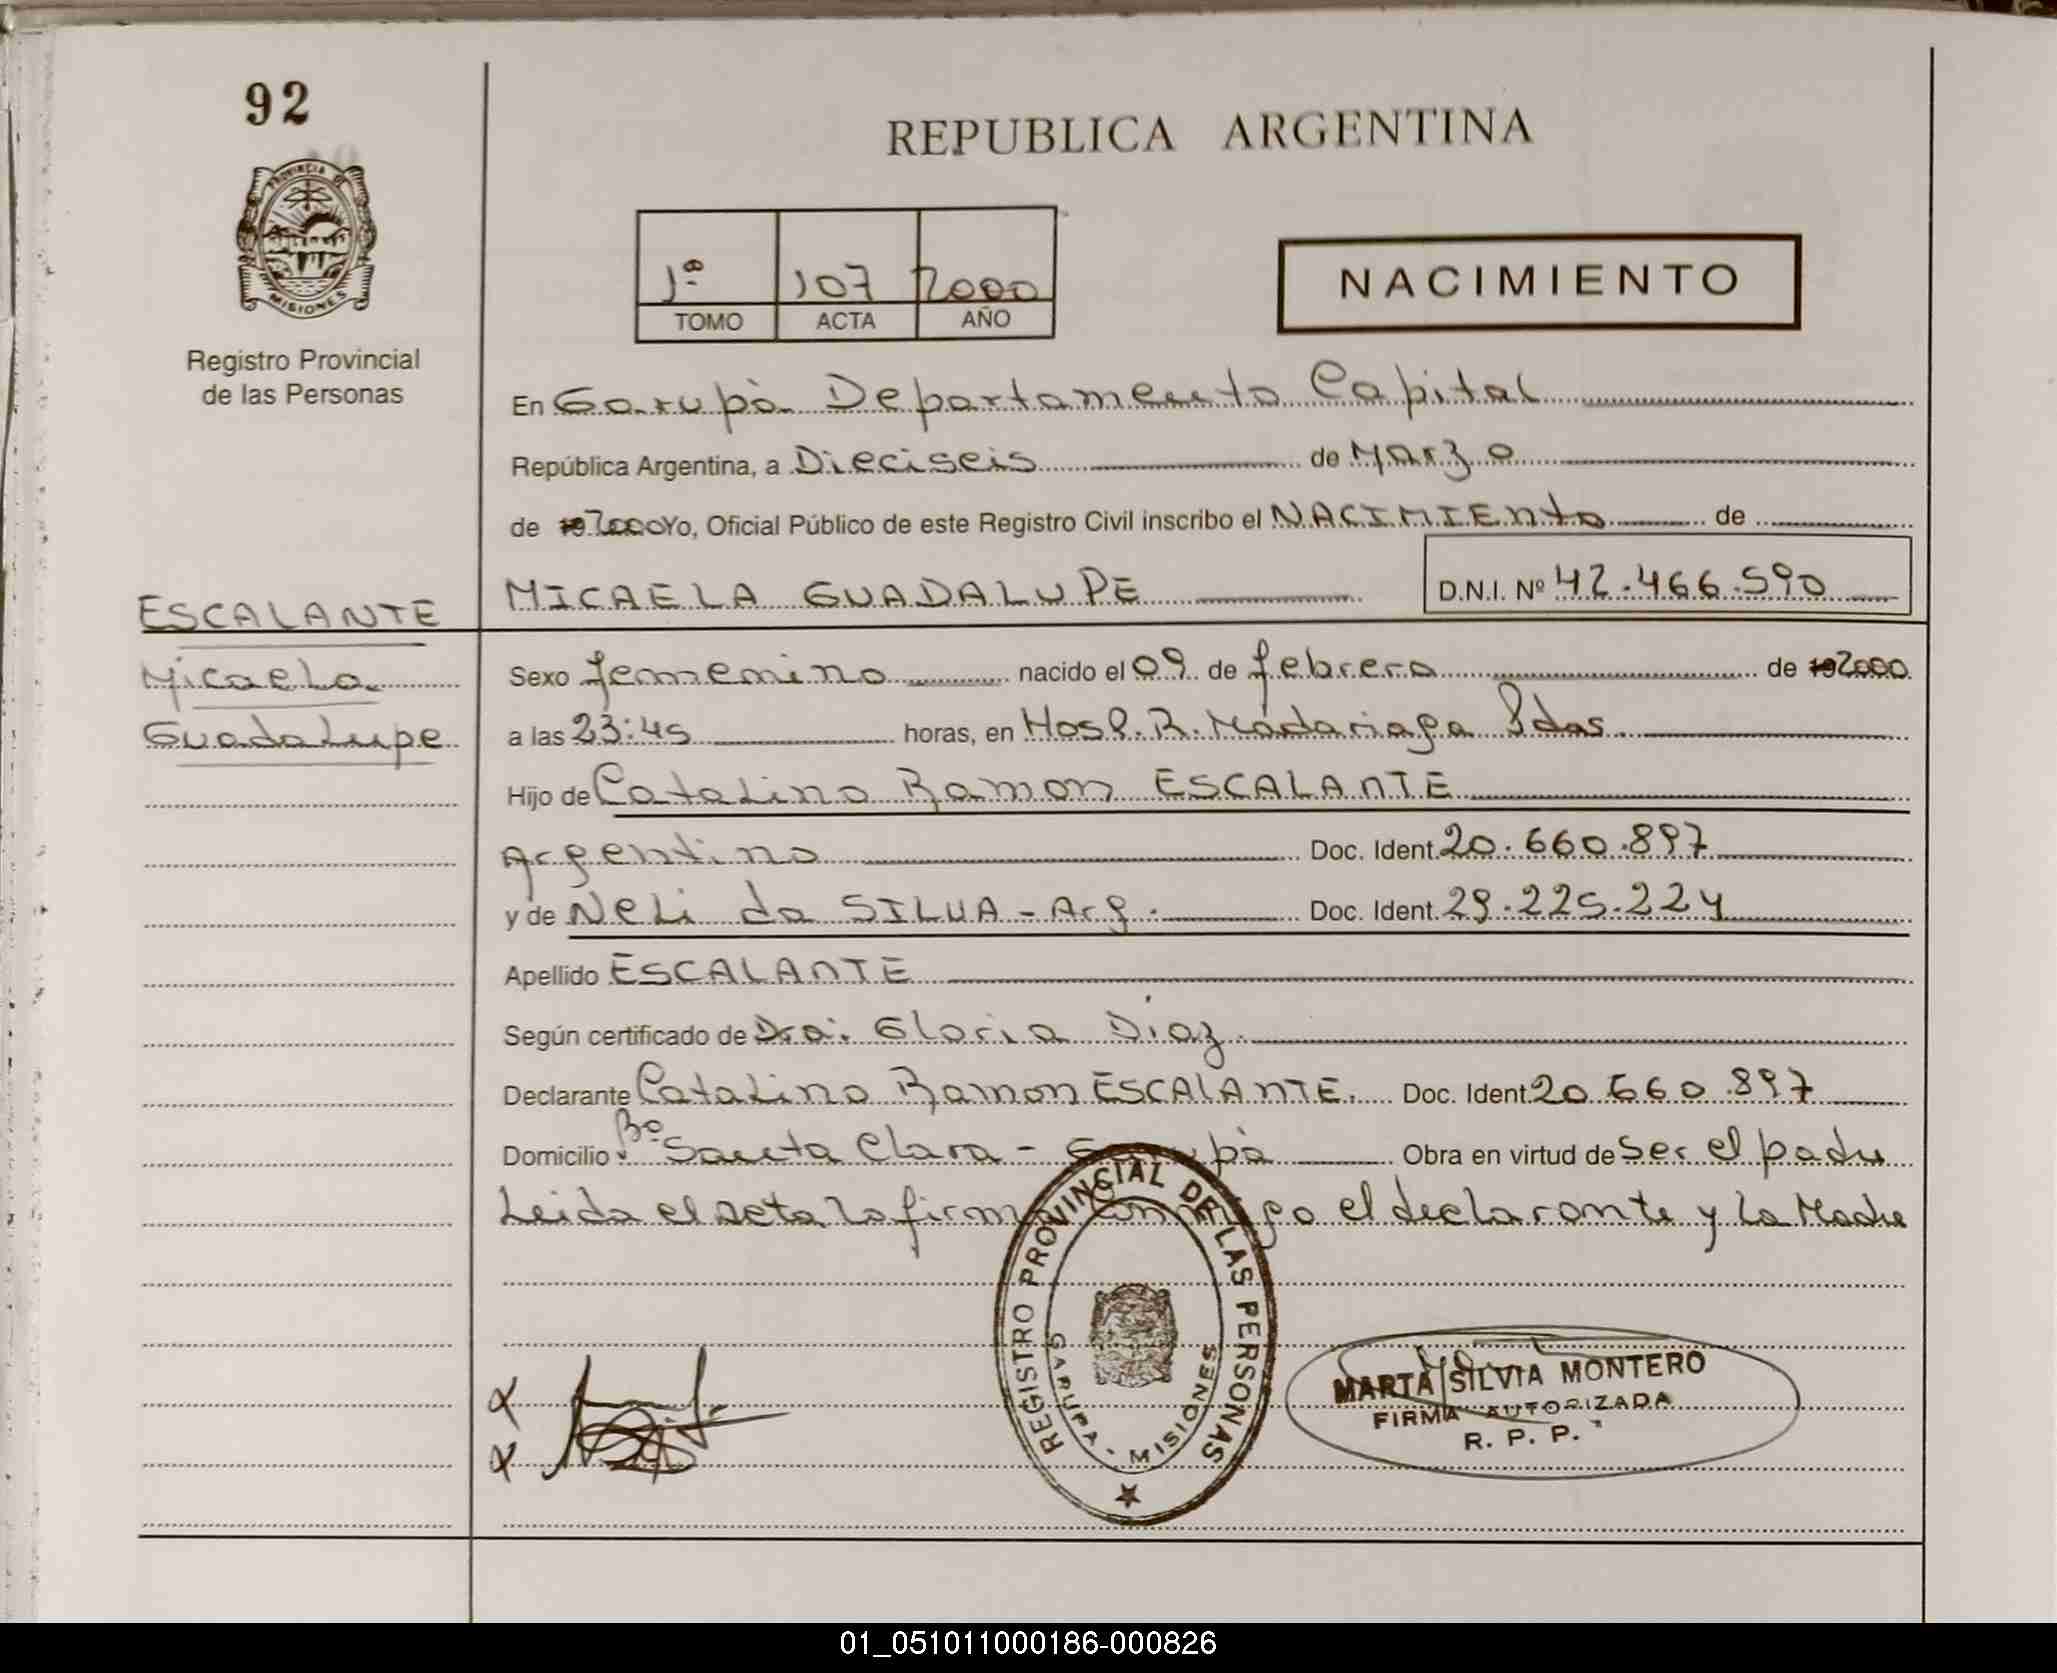 92
REPUBLICA ARGENTINA
PROVINCIA DE
MISIONES
Registro Provincial
de las Personas
1º 107 2000
TOMO ACTA AÑO
NACIMIENTO
En Garupà Departamento Capital
República Argentina, a Dieciseis de Marzo
de 19 2000 Yo, Oficial Público de este Registro Civil inscribo el NACIMIENto de
MICAELA GUADALUPE D.N.I. Nº 42.466.590
ESCALANTE
Micaela
Guadalupe
Sexo femenino nacido el 09 de febrero de 19 2000
a las 23:45 horas, en Hosp. R. Madariaga Pdas.
Hijo de Catalino Ramon ESCALANTE
Argentino Doc. Ident. 20.660.897
y de Neli da SILVA - Arg. Doc. Ident. 29.225.224
Apellido ESCALANTE
Según certificado de Dra. Gloria Diaz.
Declarante Catalino Ramon ESCALANTE. Doc. Ident. 20 660.897
Domicilio Bº Santa Clara - Garupà Obra en virtud de ser el padre
Leida el acta la firma conmigo el declarante y la Madre
REGISTRO PROVINCIAL DE LAS PERSONAS
GARUPA - MISIONES
MARTA SILVIA MONTERO
FIRMA AUTORIZADA
R. P. P.
01_051011000186-000826